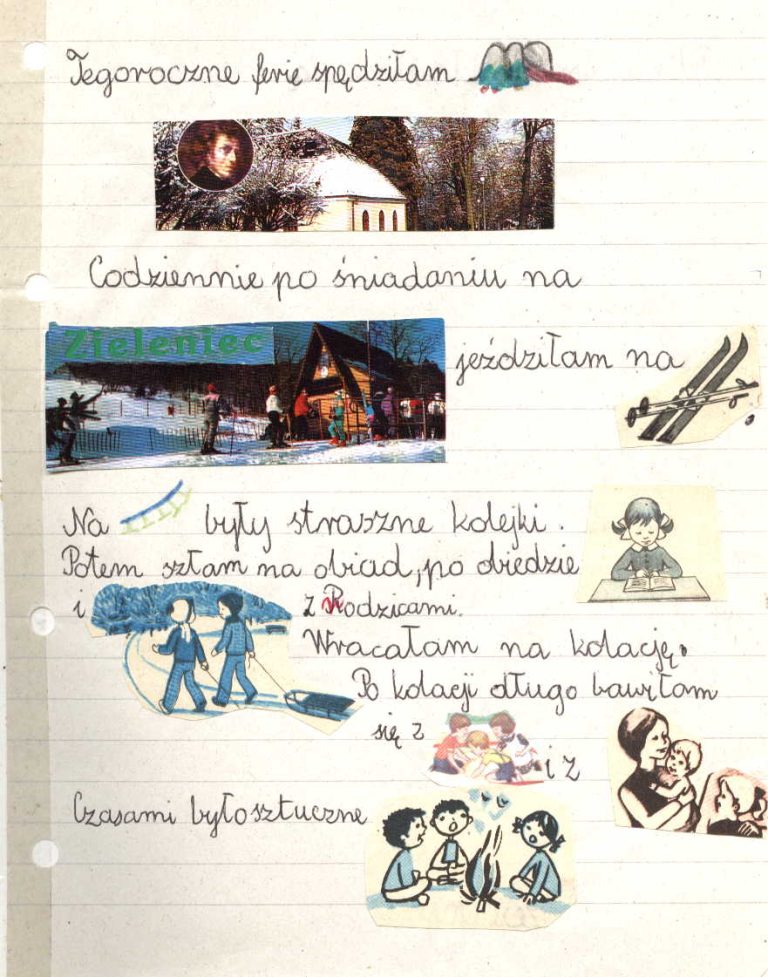 Tegoroczne ferie spędziłam
Codziennie po śniadaniu na
Zieleniec
jeździłam na
Na były straszne kolejki.
Potem szłam na obiad, po obiedzie
i z Rodzicami.
Wracałam na kolację.
Po kolacji długo bawiłam
się z
i z
Czasami było sztuczne